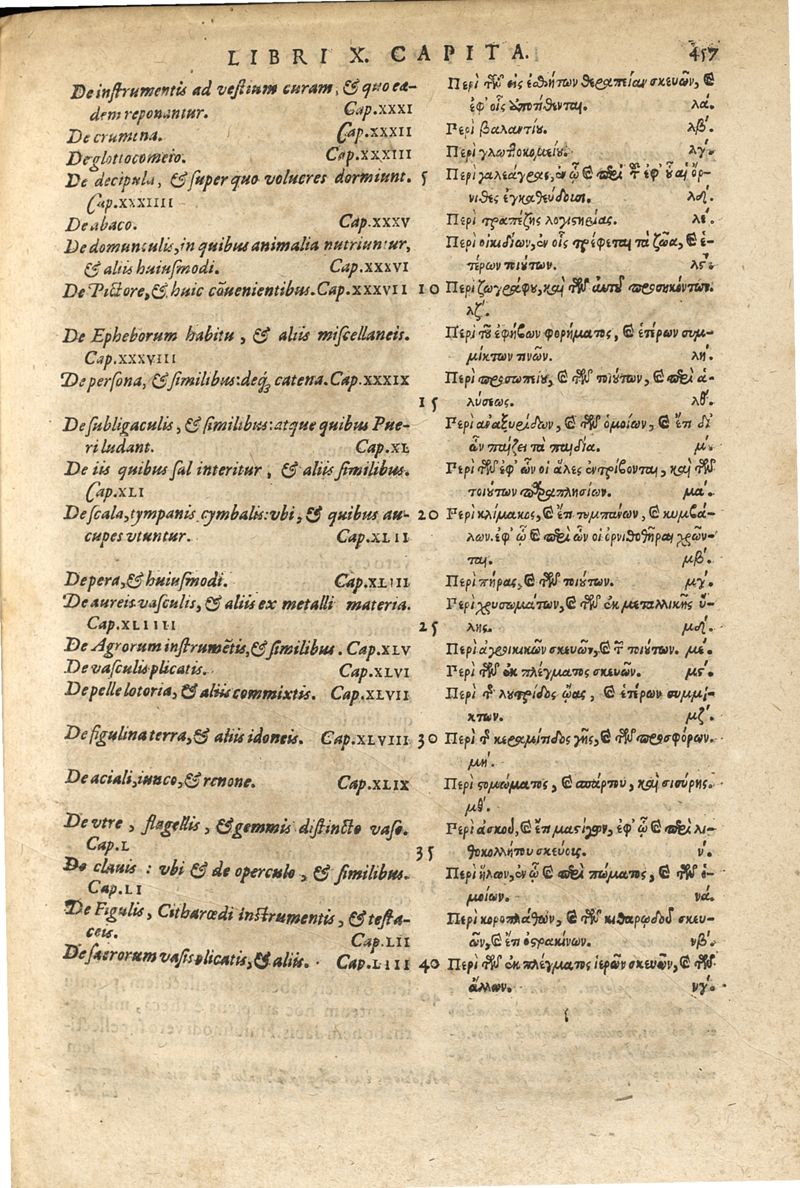 LIBRI X. CAPITA. 457
De instrumentis ad vestium curam, & quo ea-
dem reponantur. Cap.XXXI
De crumena. Cap.XXXII
De glottocomeio. Cap.XXXIII
De decipula, & super quo volucres dormiunt. 5
Cap.XXXIIII
De abaco. Cap.XXXV
De domunculis, in quibus animalia nutriuntur,
& aliis huiusmodi. Cap.XXXVI
De Pictore, & huic cōuenientibus. Cap.XXXVII 10
De Epheborum habitu, & aliis miscellaneis.
Cap.XXXVIII
De persona, & similibus: deq; catena. Cap.XXXIX
15
De subligaculis, & similibus: atque quibus Pue-
ri ludant. Cap.XL
De iis quibus sal interitur, & aliis similibus.
Cap.XLI
De scala, tympanis, cymbalis: vbi, & quibus au- 20
cupes vtuntur. Cap.XLII
De pera, & huiusmodi. Cap.XLIII
De aureis vasculis, & aliis ex metalli materia.
Cap.XLIIII
25
De Agrorum instrumētis, & similibus. Cap.XLV
De vasculis plicatis. Cap.XLVI
De pelle lotoria, & aliis commixtis. Cap.XLVII
De figulina terra, & aliis idoneis. Cap.XLVIII 30
De aciali, iunco, & renone. Cap.XLIX
De vtre, flagellis, & gemmis distincto vase.
Cap.L
35
De clauis: vbi & de operculo, & similibus.
Cap.LI
De Figulis, Citharœdi instrumentis, & testa-
ceis. Cap.LII
De sacrorum vasis plicatis, & aliis. Cap.LIII 40
Περὶ τῶν εἰς ἐσθήτων θεραπείαν σκευῶν, καὶ
ἐφ' οἷς ὑποτίθενται. λά.
Περὶ βαλαντίου. λβ΄.
Περὶ γλωττοκομείου. λγ΄.
Περὶ γαλεάγρας, ἐν ᾧ καὶ περὶ τῶν ἐφ' οὗ αἱ ὄρ-
νιθες ἐγκαθεύδουσι. λδ΄.
Περὶ τραπέζης λογιστηρίας. λέ.
Περὶ οἰκιδίων, ἐν οἷς τρέφεται τὰ ζῶα, καὶ ἑ-
τέρων τοιούτων. λς΄.
Περὶ ζωγράφου, καὶ τῶν αὐτῷ προσηκόντων.
λζ΄.
Περὶ τοῦ ἐφήβων φορήματος, καὶ ἑτέρων συμ-
μίκτων τινῶν. λή.
Περὶ προσωπείου, καὶ τῶν τοιούτων, καὶ περὶ ἁ-
λύσεως. λθ΄.
Περὶ ἀναξυρίδων, καὶ τῶν ὁμοίων, καὶ ἔτι δι'
ὧν παίζει τὰ παιδία. μ΄.
Περὶ τῶν ἐφ' ὧν οἱ ἅλες ἐντρίβονται, καὶ τῶν
τοιούτων παραπλησίων. μα΄.
Περὶ κλίμακος, καὶ ἔτι τυμπάνων, καὶ κυμβά-
λων. ἐφ' ᾧ καὶ περὶ ὧν οἱ ὀρνιθοθῆραι χρῶν-
ται. μβ΄.
Περὶ πήρας, καὶ τῶν τοιούτων. μγ΄.
Περὶ χρυσωμάτων, καὶ τῶν ἐκ μεταλλικῆς ὕ-
λης. μδ΄.
Περὶ ἀγροικικῶν σκευῶν, καὶ τῶν τοιούτων. μέ.
Περὶ τῶν ἐκ πλέγματος σκευῶν. μς΄.
Περὶ τῆς λουτρίδος ὤας, καὶ ἑτέρων συμμί-
κτων. μζ΄.
Περὶ τῆς κεραμίτιδος γῆς, καὶ τῶν προσφόρων.
μή.
Περὶ στομώματος, καὶ σπάρτου, καὶ σισύρης.
μθ΄.
Περὶ ἀσκοῦ, καὶ ἔτι μαστίγων, ἐφ' ᾧ καὶ περὶ λι-
θοκολλήτου σκεύους. ν΄.
Περὶ ἥλων, ἐν ᾧ καὶ περὶ πώματος, καὶ τῶν ὁ-
μοίων. νά.
Περὶ κοροπλάθων, καὶ τῶν κιθαρῳδοῦ σκευ-
ῶν, καὶ ἔτι ὀστρακίνων. νβ΄.
Περὶ τῶν ἐκ πλέγματος ἱερῶν σκευῶν, καὶ τῶν
ἄλλων. νγ΄.